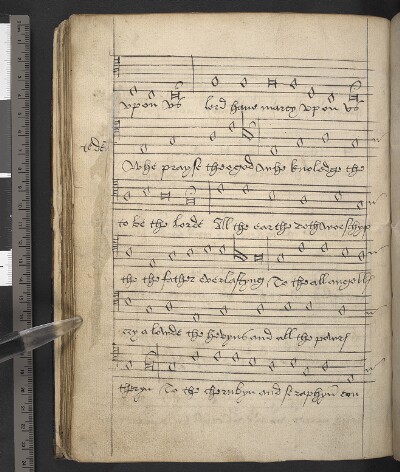 vpon vs lord haue marcy vpon vs
te de
Whe prayse the o god whe knoledge the
to be the lorde All the earthe doth worschyp
the the father everlastyng To the all angells
cry a lowde the hevyns and all the powrs
theryn To the cherubyn and seraphyn con